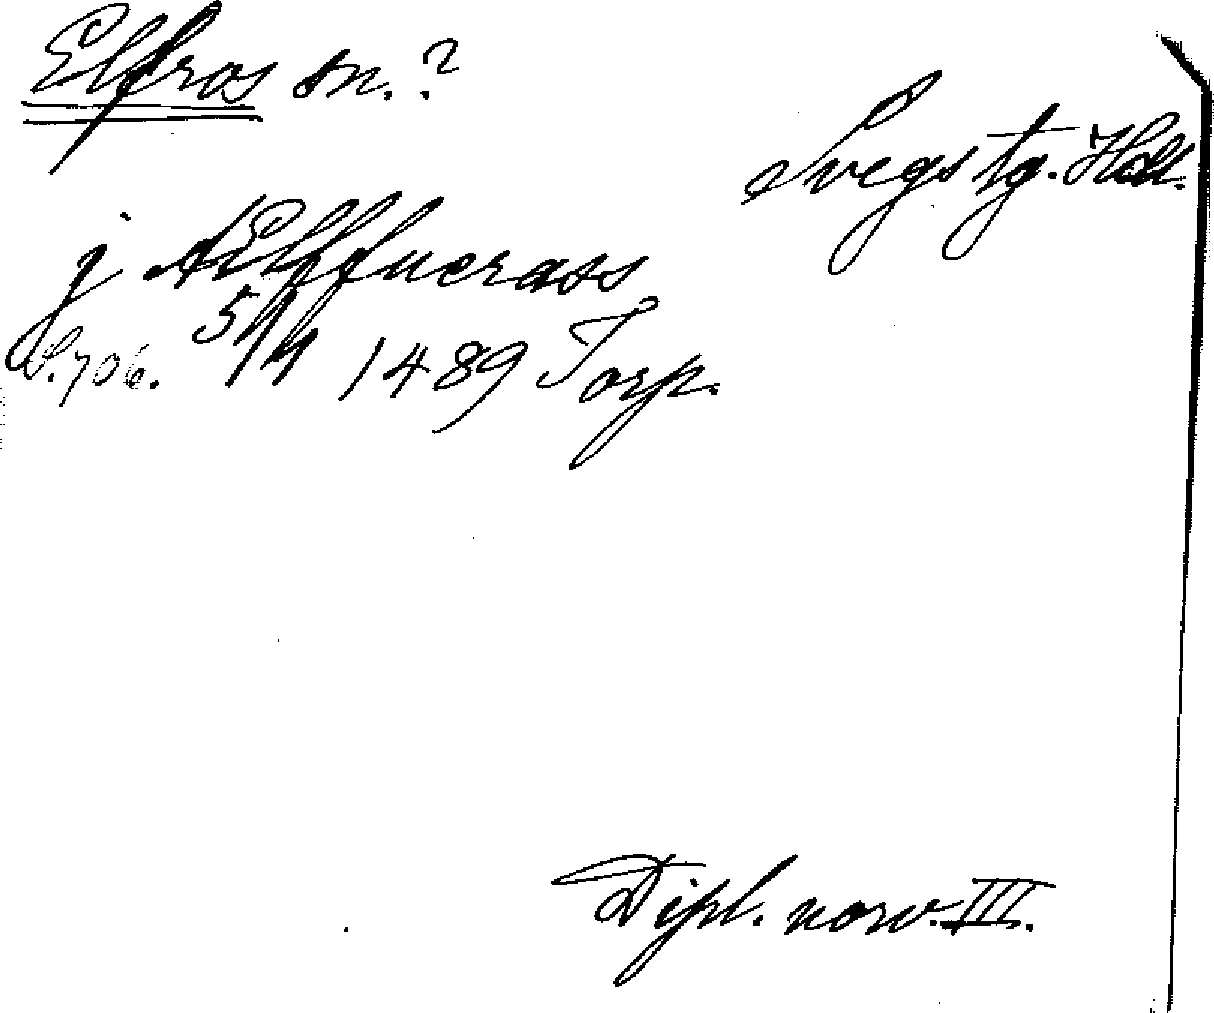 Elfros sn.?
Svegs tg. Hdl.
j Ælffuerass
S. 706. 5/4 1489 Torp.
Dipl. norv. III.